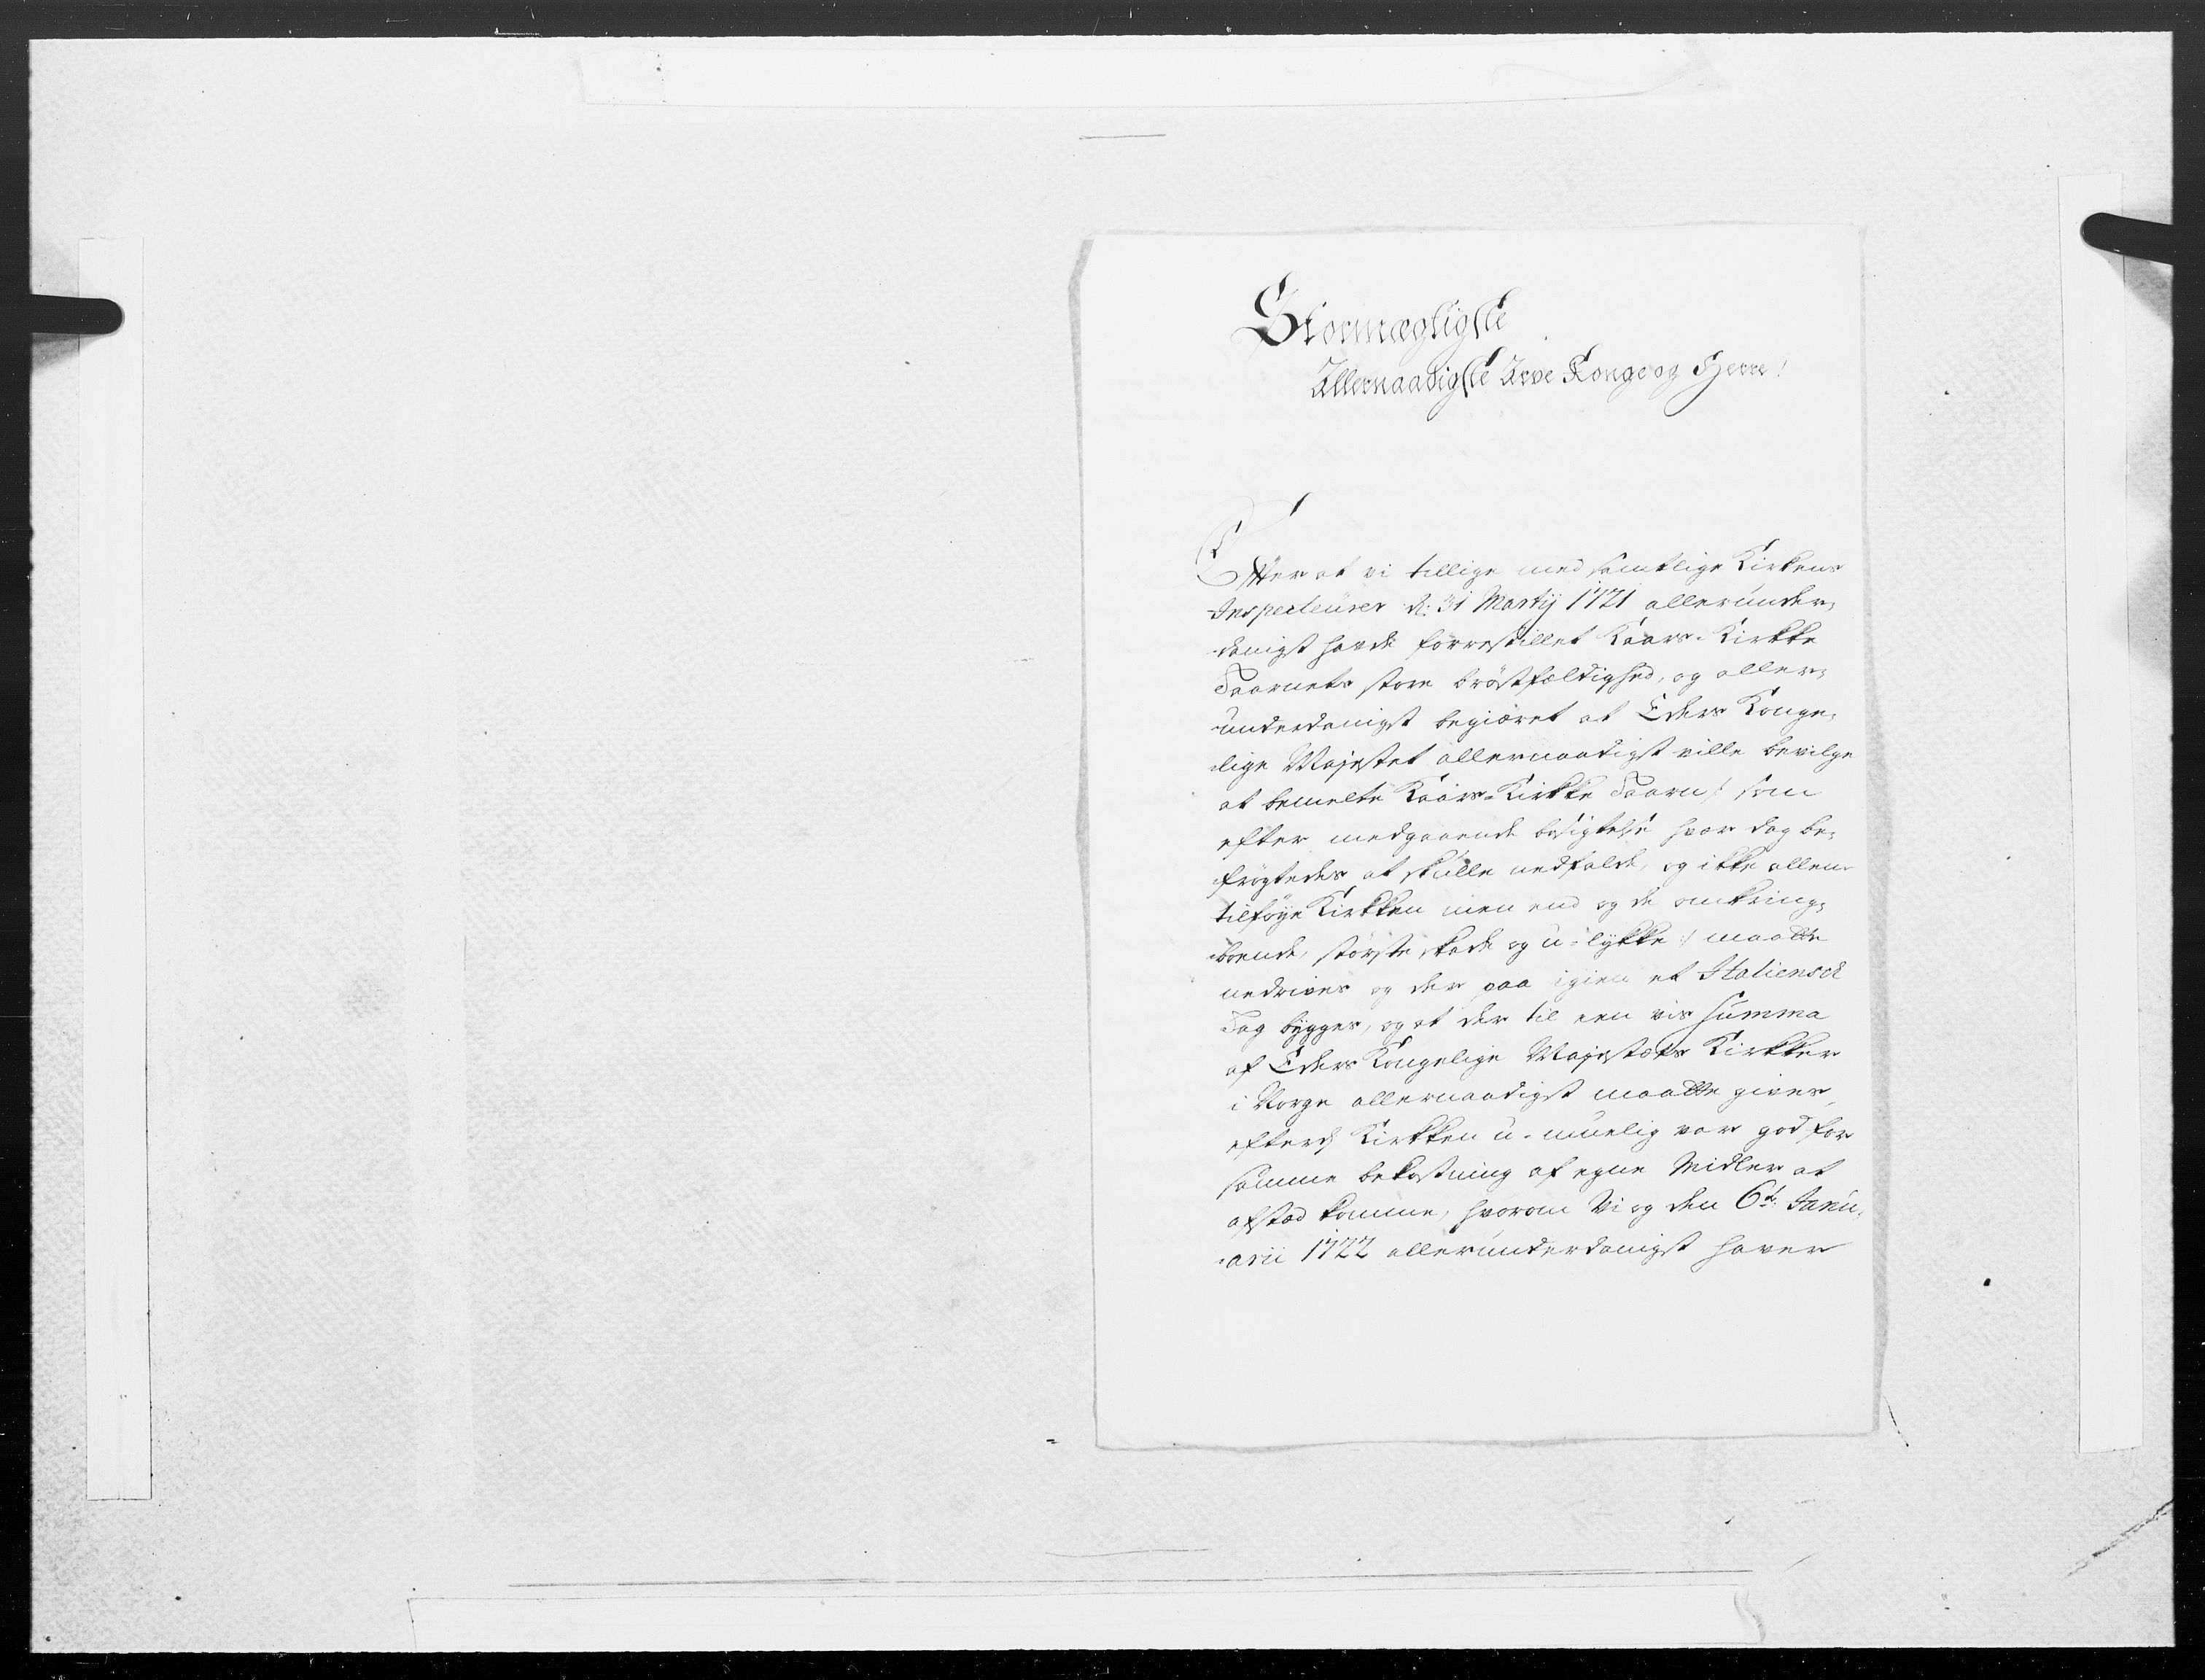 Stormægtigste
Allernaadigste Arve Konge og Herre!
Efter at vi tillige med samtlige Kirkens
Inspecteurer d: 31 Martij 1721 allerunder-
danigst havde forrestillet Kaars-Kirkke
Taarnets store brøstfældighed, og aller-
underdanigst begiæret at Eders Konge-
lige Majestet allernaadigst ville bevilge
at bemelte Kaars-Kirkke Taarn /: som
efter medgaaende besigtelse hver dag be-
frøgtedes at skulle nedfalde, og ikke allene
tilføye Kirkken men end og de omkring-
boende, største skade og u-lykke :/ maatte
nedrives og der paa igien et Italiensck
Tag bygges, og at der til een vis summa
af Eders Kongelige Majestæts Kirkker
i Norge allernaadigst maatte gives,
efterd Kirkken u-muelig var god for
samme bekostning af egne Midler at
afsted komme, hvorom Vi og den 6t Janu-
arii 1722 allerunderdanigst haver